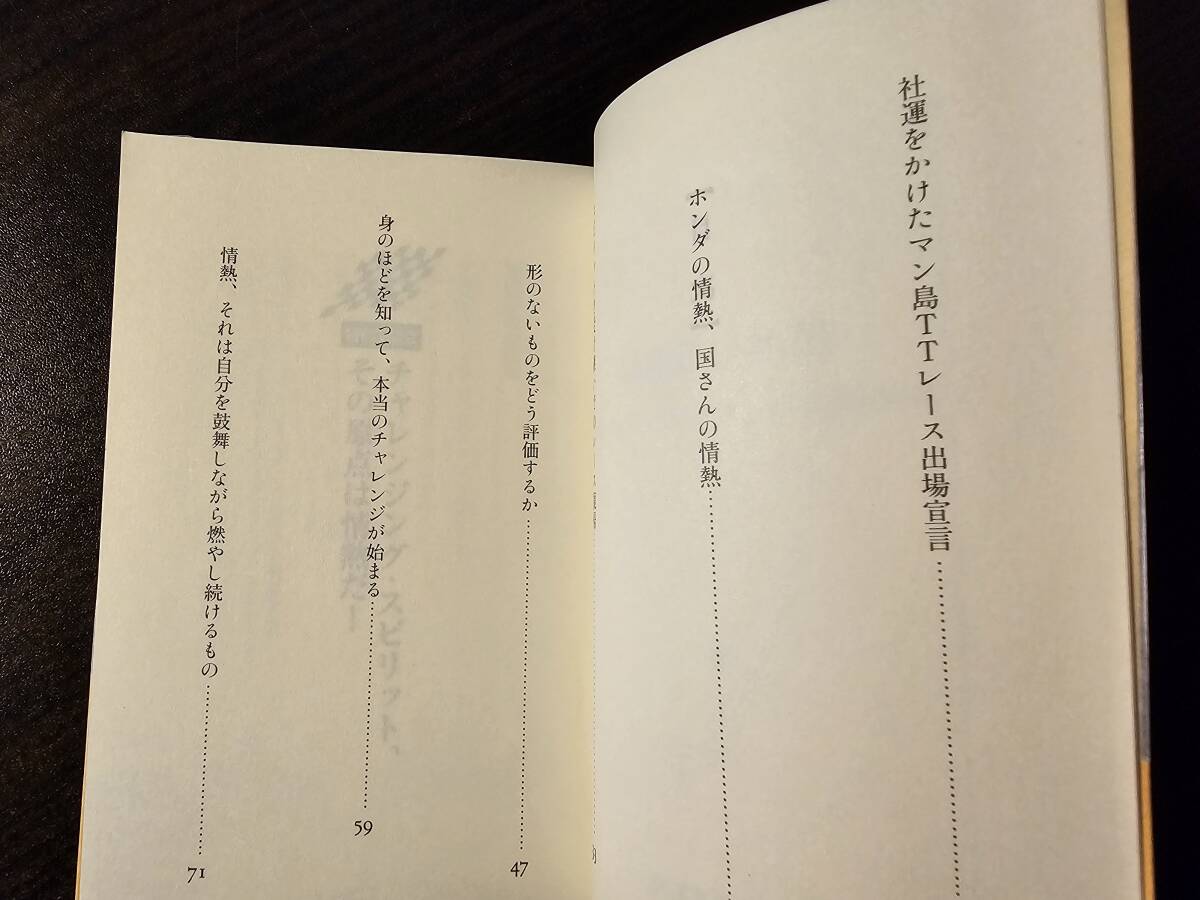 社運をかけたマン島TTレース出場宣言……………………
ホンダの情熱、国さんの情熱……………………
形のないものをどう評価するか……………………47
身のほどを知って、本当のチャレンジが始まる……………………59
情熱、それは自分を鼓舞しながら燃やし続けるもの……………………71